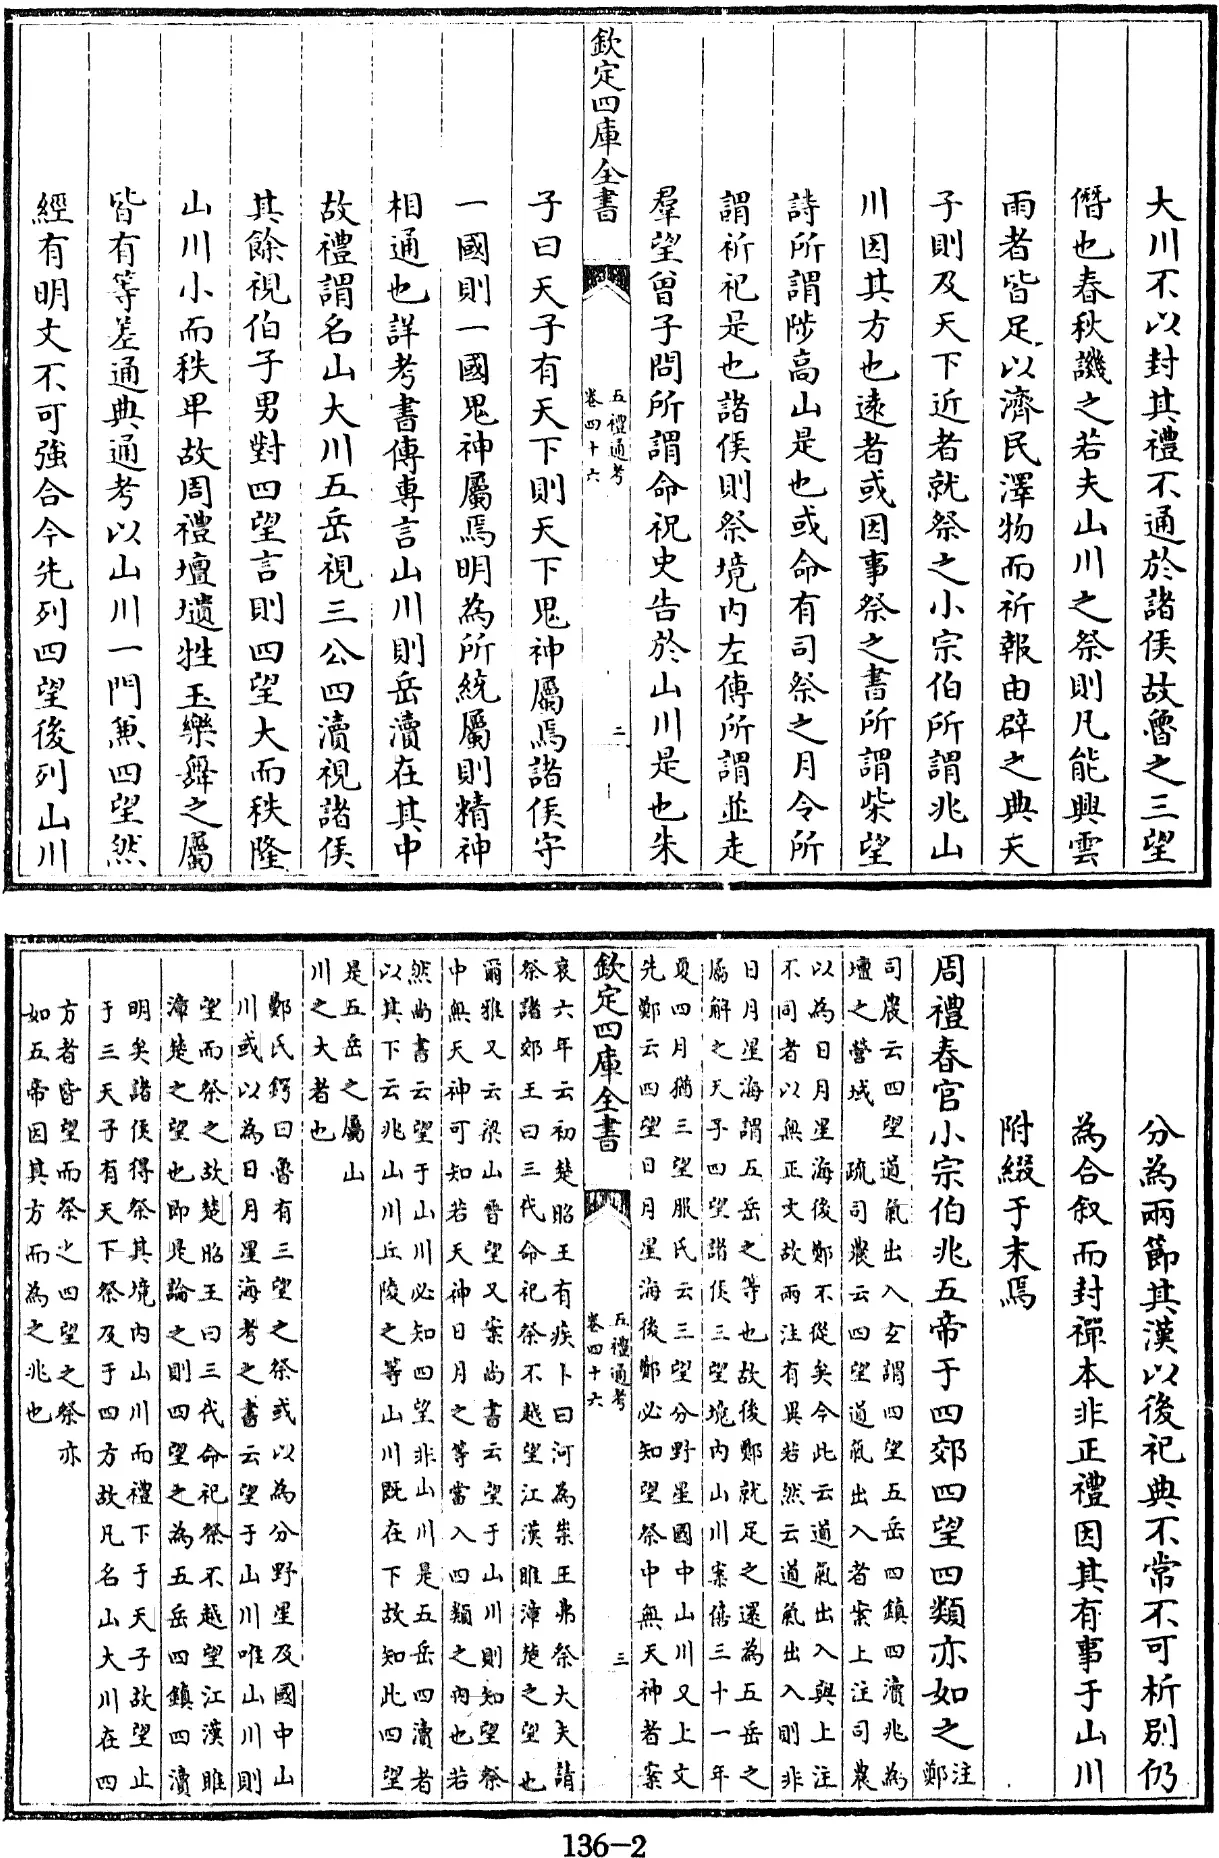 大川不以封其禮不通於諸侯故魯之三望
僭也春秋譏之若夫山川之祭則凡能興雲
雨者皆足以濟民澤物而祈報由辟之典天
子則及天下近者就祭之小宗伯所謂兆山
川因其方也遠者或因事祭之書所謂柴望
詩所謂陟高山是也或命有司祭之月令所
謂祈祀是也諸侯則祭境内左傳所謂並走
羣望曾子問所謂命祝史告於山川是也朱
欽定四庫全書
五禮通考
卷四十六
二
子曰天子有天下則天下鬼神屬焉諸侯守
一國則一國鬼神屬焉明為所統屬則精神
相通也詳考書傳專言山川則岳瀆在其中
故禮謂名山大川五岳視三公四瀆視諸侯
其餘視伯子男對四望言則四望大而秩隆
山川小而秩卑故周禮壇壝牲玉樂舞之屬
皆有等差通典通考以山川一門兼四望然
經有明文不可強合今先列四望後列山川
分為兩節其漢以後祀典不常不可析别仍
為合叙而封禪本非正禮因其有事于山川
附綴于末焉
周禮春官小宗伯兆五帝于四郊四望四類亦如之
注鄭
司農云四望道氣出入玄謂四望五岳四鎮四瀆兆為
壇之營域 疏司農云四望道氣出入者案上注司農
以為日月星海後鄭不從矣今此云道氣出入與上注
不同者以無正文故兩注有異若然云道氣出入則非
日月星海謂五岳之等也故後鄭就足之還為五岳之
屬解之天子四望諸侯三望境内山川案僖三十一年
夏四月猶三望服氏云三望分野星國中山川又上文
先鄭云四望日月星海後鄭必知望祭中無天神者案
欽定四庫全書
五禮通考
卷四十六
三
哀六年云初楚昭王有疾卜曰河為祟王弗祭大夫請
祭諸郊王曰三代命祀祭不越望江漢睢漳楚之望也
爾雅又云梁山晉望又案尚書云望于山川則知望祭
中無天神可知若天神日月之等當入四類之内也若
然尚書云望于山川必知四望非山川是五岳四瀆者
以其下云兆山川丘陵之等山川既在下故知此四望
是五岳之屬山
川之大者也
鄭氏鍔曰魯有三望之祭或以為分野星及國中山
川或以為日月星海考之書云望于山川唯山川則
望而祭之故楚昭王曰三代命祀祭不越望江漢睢
漳楚之望也即是論之則四望之為五岳四鎮四瀆
明矣諸侯得祭其境内山川而禮下于天子故望止
于三天子有天下祭及于四方故凡名山大川在四
方者皆望而祭之四望之祭亦
如五帝因其方而為之兆也
136-2